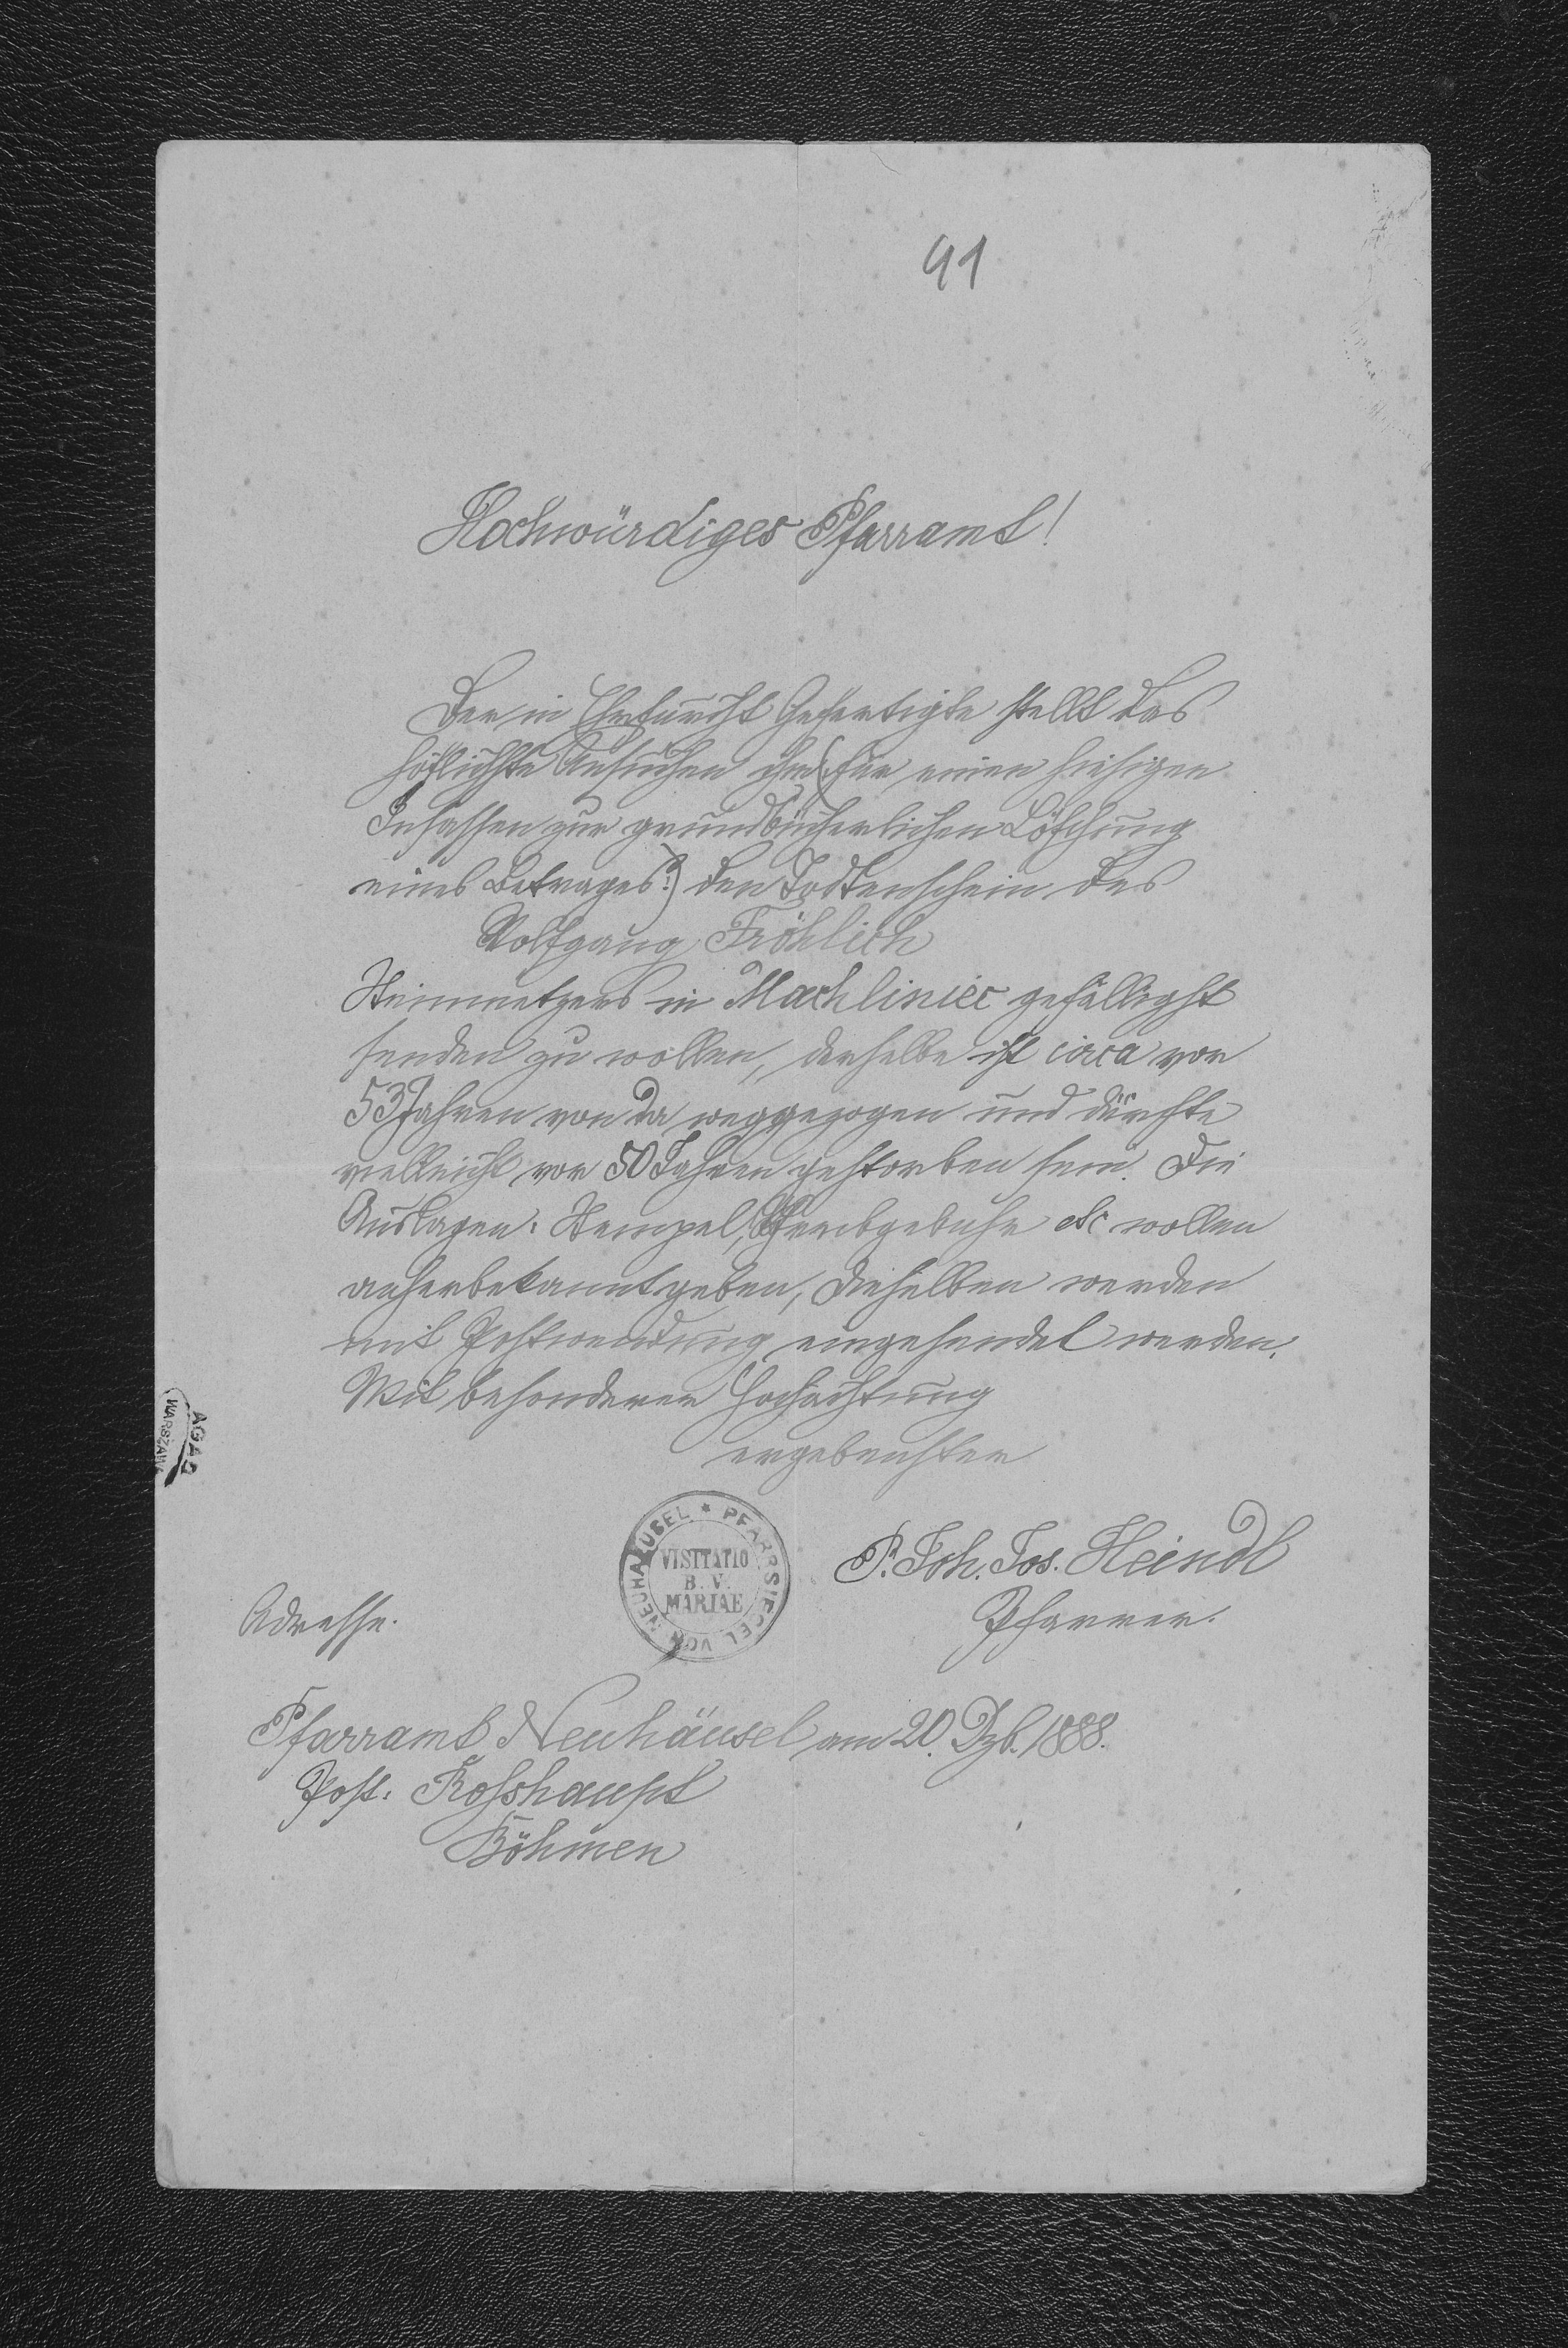 41
Hochwürdiges Pfarramt!
Der in Ehrfurcht Gefertigte stellt das
höflichste Ansuchen ihm (für einen hiesigen
Insassen zur grundbücherlichen Löschung
eines Betrages:) den Todtenschein des
Wolfgang Fröhlich
Steinmetzers in Machliniec gefälligst
senden zu wollen, derselbe ist circa vor
53 Jahren von da weggezogen und dürfte
vielleicht vor 50 Jahren gestorben sein. Die
Auslagen: Stempel, Schreibgebühr etc wollen
anherbekanntgeben, dieselben werden
mit Postwendung eingesendet werden.
Mit besonderer Hochachtung
ergebenster
PFARRSIEGEL VON NEUHAEUSEL *
VISITATIO
B. V.
MARIAE
P. Joh. Jos. Heindl
Pfarrer.
Adresse.
Pfarramt Neuhäusel am 20. Dzb. 1888.
Post: Rosshaupt
Böhmen
AGAD
WARSZAWA